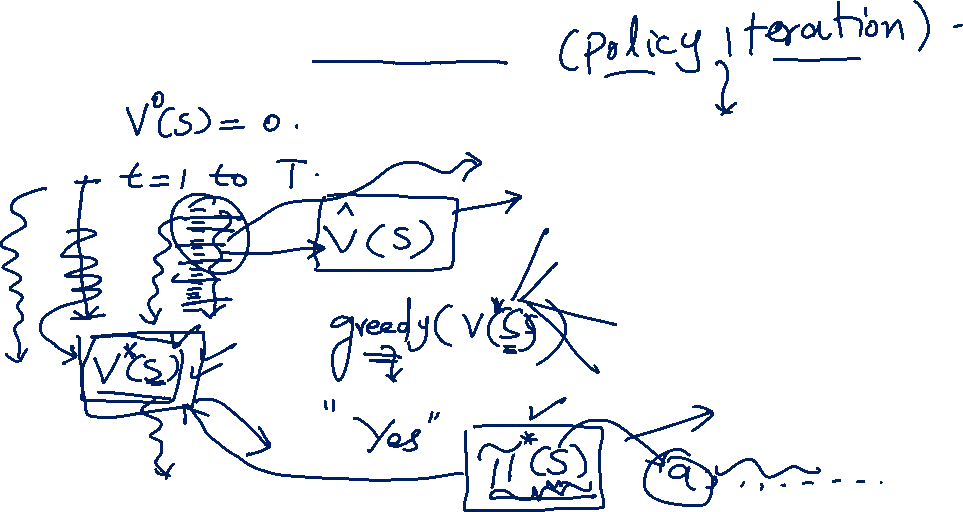 (Policy Iteration) -
V⁰(S) = 0.
t=1 to T.
V̂(S)
greedy(V*(S))
V*(S)
"Yes"
π*(S)
a